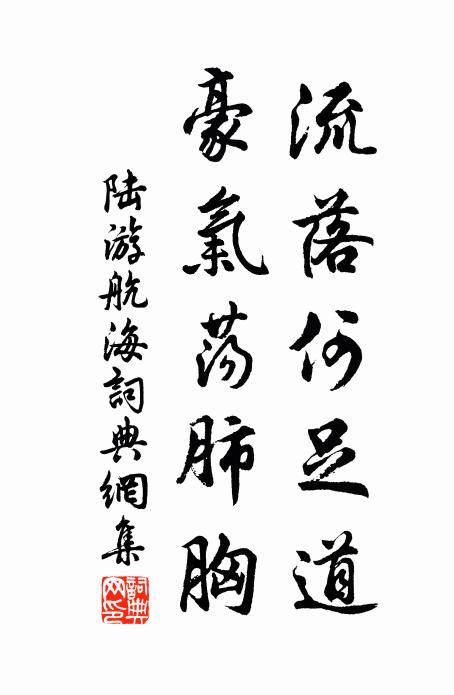 流落何足道
豪氣荡肺胸
陆游航海詞典網集
詞典
网印